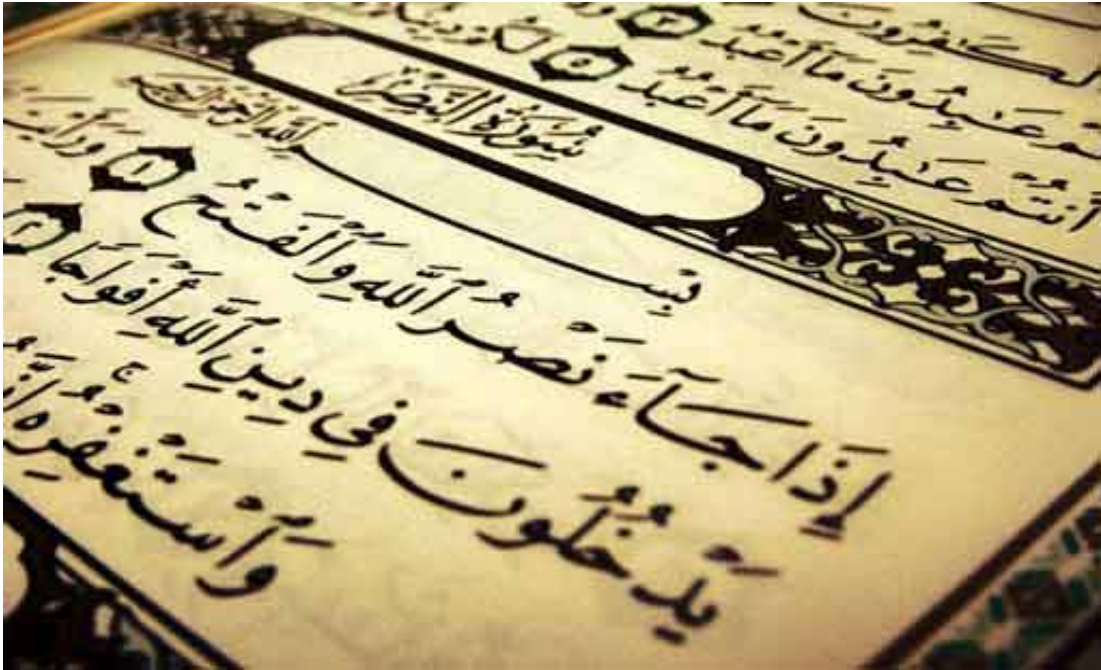 لكَٰفِرُونَ
تُمْ عَٰبِدُونَ مَآ أَعْبُدُ ٣
أَنتُمْ عَٰبِدُونَ مَآ أَعْبُدُ ٥ لَكُمْ دِينُ
سُورَةُ النَّصْرِ
بِسْمِ ٱللَّهِ ٱلرَّحْمَٰنِ ٱلرَّحِيمِ
إِذَا جَآءَ نَصْرُ ٱللَّهِ وَٱلْفَتْحُ ١ وَرَأَيْتَ
يَدْخُلُونَ فِي دِينِ ٱللَّهِ أَفْوَاجًا ٢
وَٱسْتَغْفِرْهُ ۚ إِنَّهُ